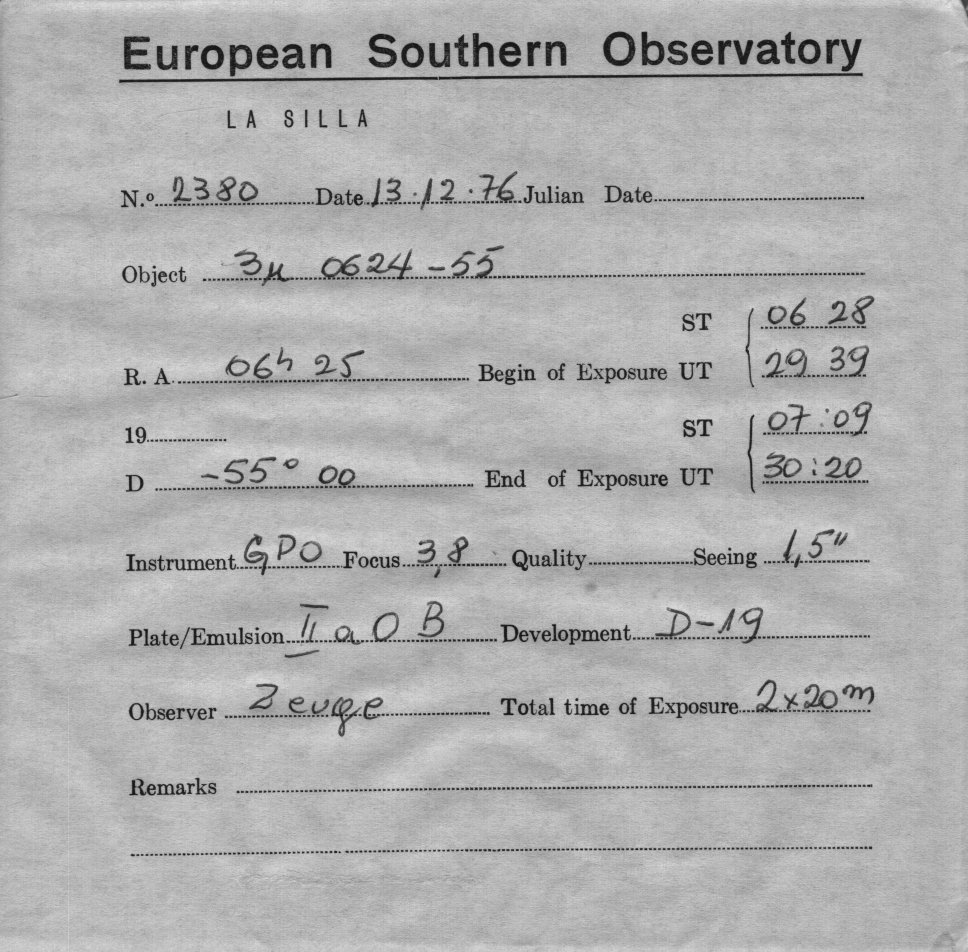 European Southern Observatory
LA SILLA
N.º 2380 Date 13.12.76 Julian Date
Object 3µ 0624 -55
ST 06 28
R. A. 06h 25 Begin of Exposure UT 29 39
19 ST 07:09
D -55° 00 End of Exposure UT 30:20
Instrument GPO Focus 3,8 Quality Seeing 1,5"
Plate/Emulsion II a O B Development D-19
Observer Total time of Exposure 2x20m
Remarks